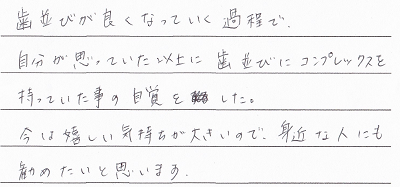 歯並びが良くなっていく過程で、
自分が思っていた以上に歯並びにコンプレックスを
持っていた事の自覚をした。
今は嬉しい気持ちが大きいので、身近な人にも
勧めたいと思います。